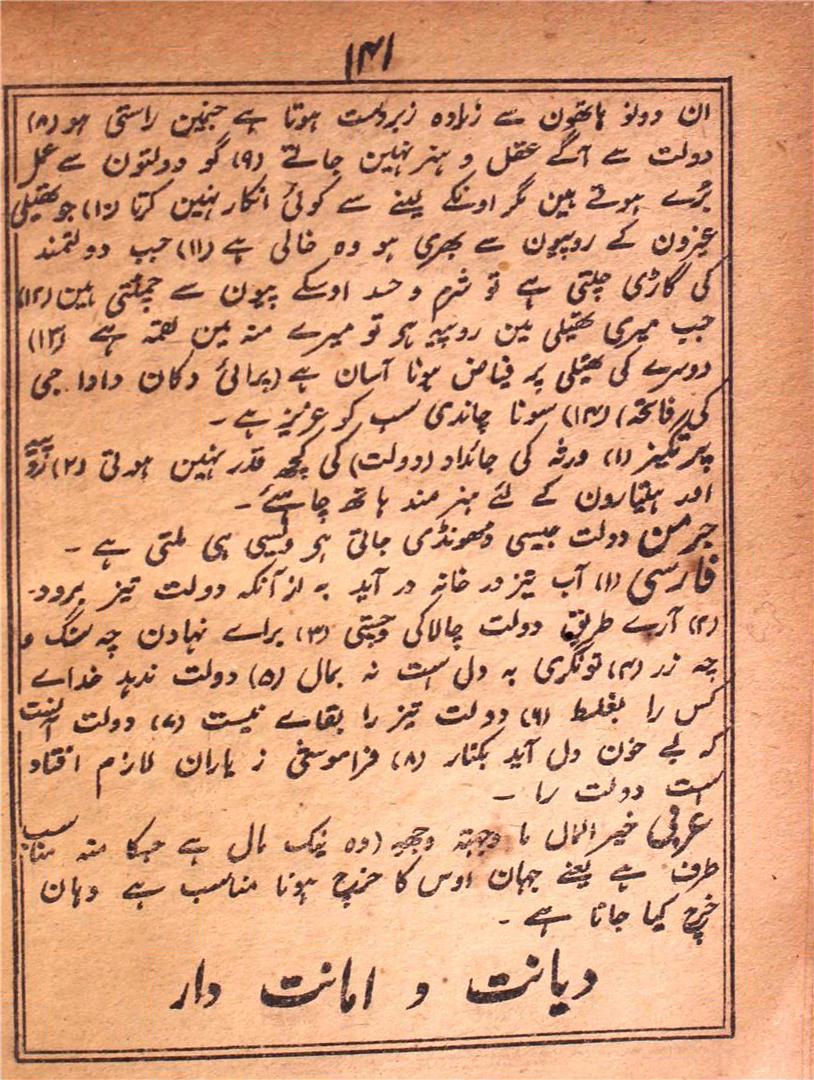 ۱۴۱
ان دونو ہاتھون سے زیادہ زبردست ہوتا ہے جنمین راستی ہو (۸)
دولت سے آگے عقل و ہنر نہین جاتے (۹) گو دولتون سے عمل
بُرے ہوتے ہین مگر اونکے لینے سے کوئی انکار نہین کرتا (۱۰) جو تھیلی
غیرون کے روپیون سے بھری ہو وہ خالی ہے (۱۱) جب دولتمند
کی گاڑی چلتی ہے تو شرم و حسد اوسکے پیون سے چمٹتی ہین (۱۲)
جب میری تھیلی مین روپیہ ہو تو میرے منہ مین لقمہ ہے (۱۳)
دوسرے کی تھیلی پر فیاض ہونا آسان ہے (پرائی دکان دادا جی
کی فاتحہ) (۱۴) سونا چاندی سب کو عزیز ہے ۔
پیرتگیز (۱) ورثہ کی جائداد (دولت) کی کچھ قدر نہین ہوتی (۲) روپیہ
اور ہتیارون کے لئے ہنرمند ہاتھ چاہئے ۔
جرمن دولت جیسی ڈھونڈی جاتی ہو ویسی ہی ملتی ہے ۔
فارسی (۱) آب تیز در خانہ در آید بہ از آنکہ دولت تیز برود۔
(۲) آرے طریق دولت چالاکی و چستی (۳) براے نہادن چہ سنگ و
چہ زر (۴) تونگری بہ دل ست نہ بمال (۵) دولت ندہد خداے
کس را بغلط (۶) دولت تیز را بقاے نیست (۷) دولت آنست
کہ بے خون دل آید بکنار (۸) فراموشی ز یاران لازم افتاد
ست دولت را ۔
عربی خیر المال ما وجہتہ وجھہ (وہ نیک مال ہے جسکا منہ مناسب
طرف ہے یعنے جہان اوس کا خرچ ہونا مناسب ہے وہان
خرچ کیا جاتا ہے ۔
دیانت و امانت دار